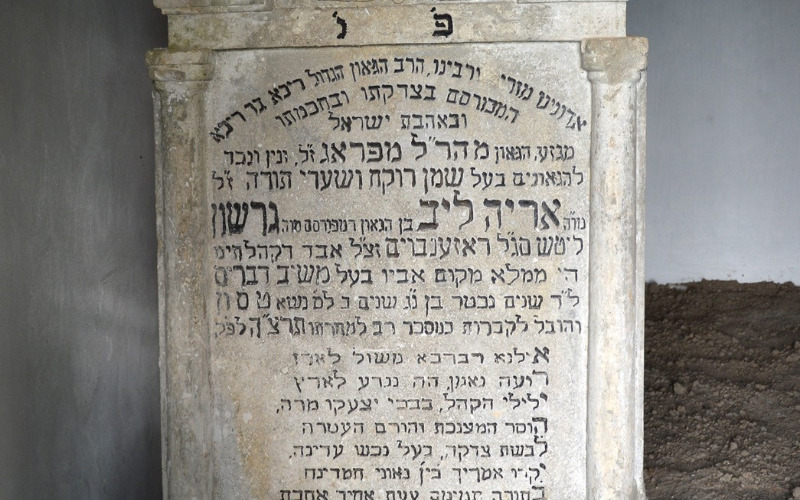 פ נ
אדונינו מורי ורבינו, הרב הגאון הגדול ריבא בר ריבא
המפורסם בצדקתו ובחכמתו
ובאהבת ישראל
מגזע, הגאון מהר״ל מפראג ז״ל, ונין ונכד
להגאונים בעל שמן רוקח ושערי תורה ז״ל
מו״ה אריה ליב בן הגאון המפורסם מוה גרשון
ליטש סג״ל ראזענבוים זצ״ל אבד דקהלתינו
הי׳ ממלא מקום אביו בעל משיב דברים
ל״ד שנים נפטר בן נ״ג שנים ב לס׳ משא ט ס ח
והובל לקברות כמספר רב למחרתו תרצ״ח לפק
אילנא רברבא משול לארז
רועה נאמן, הה נגרע לארץ
ילילי הקהל, בבכי יצעקו מרה,
הוסר המצנפת והורם העטרה
לבשת צדקה, בעל נפש עדינה,
יקירו אמריך בין גאוני המדינה